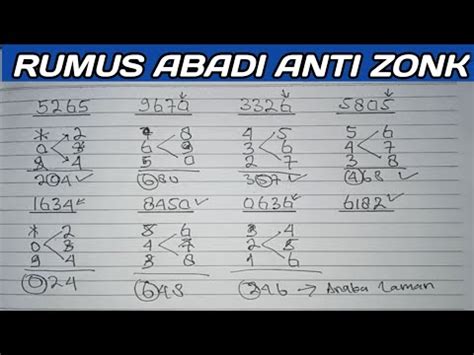 RUMUS ABADI ANTI ZONK
5265 9670 3326 5805
* 2 8 4 5 5 6
0 6 9 3 6 4 7
9 4 5 0 2 7 3 8
204 ✓ 680 367 ✓ 468 ✓
1634 ✓ 8450 ✓ 0636 ✓ 6182 ✓
* 2 6 3 4
0 3 4 7 2 5
9 4 3 8 1 6
024 648 246 →